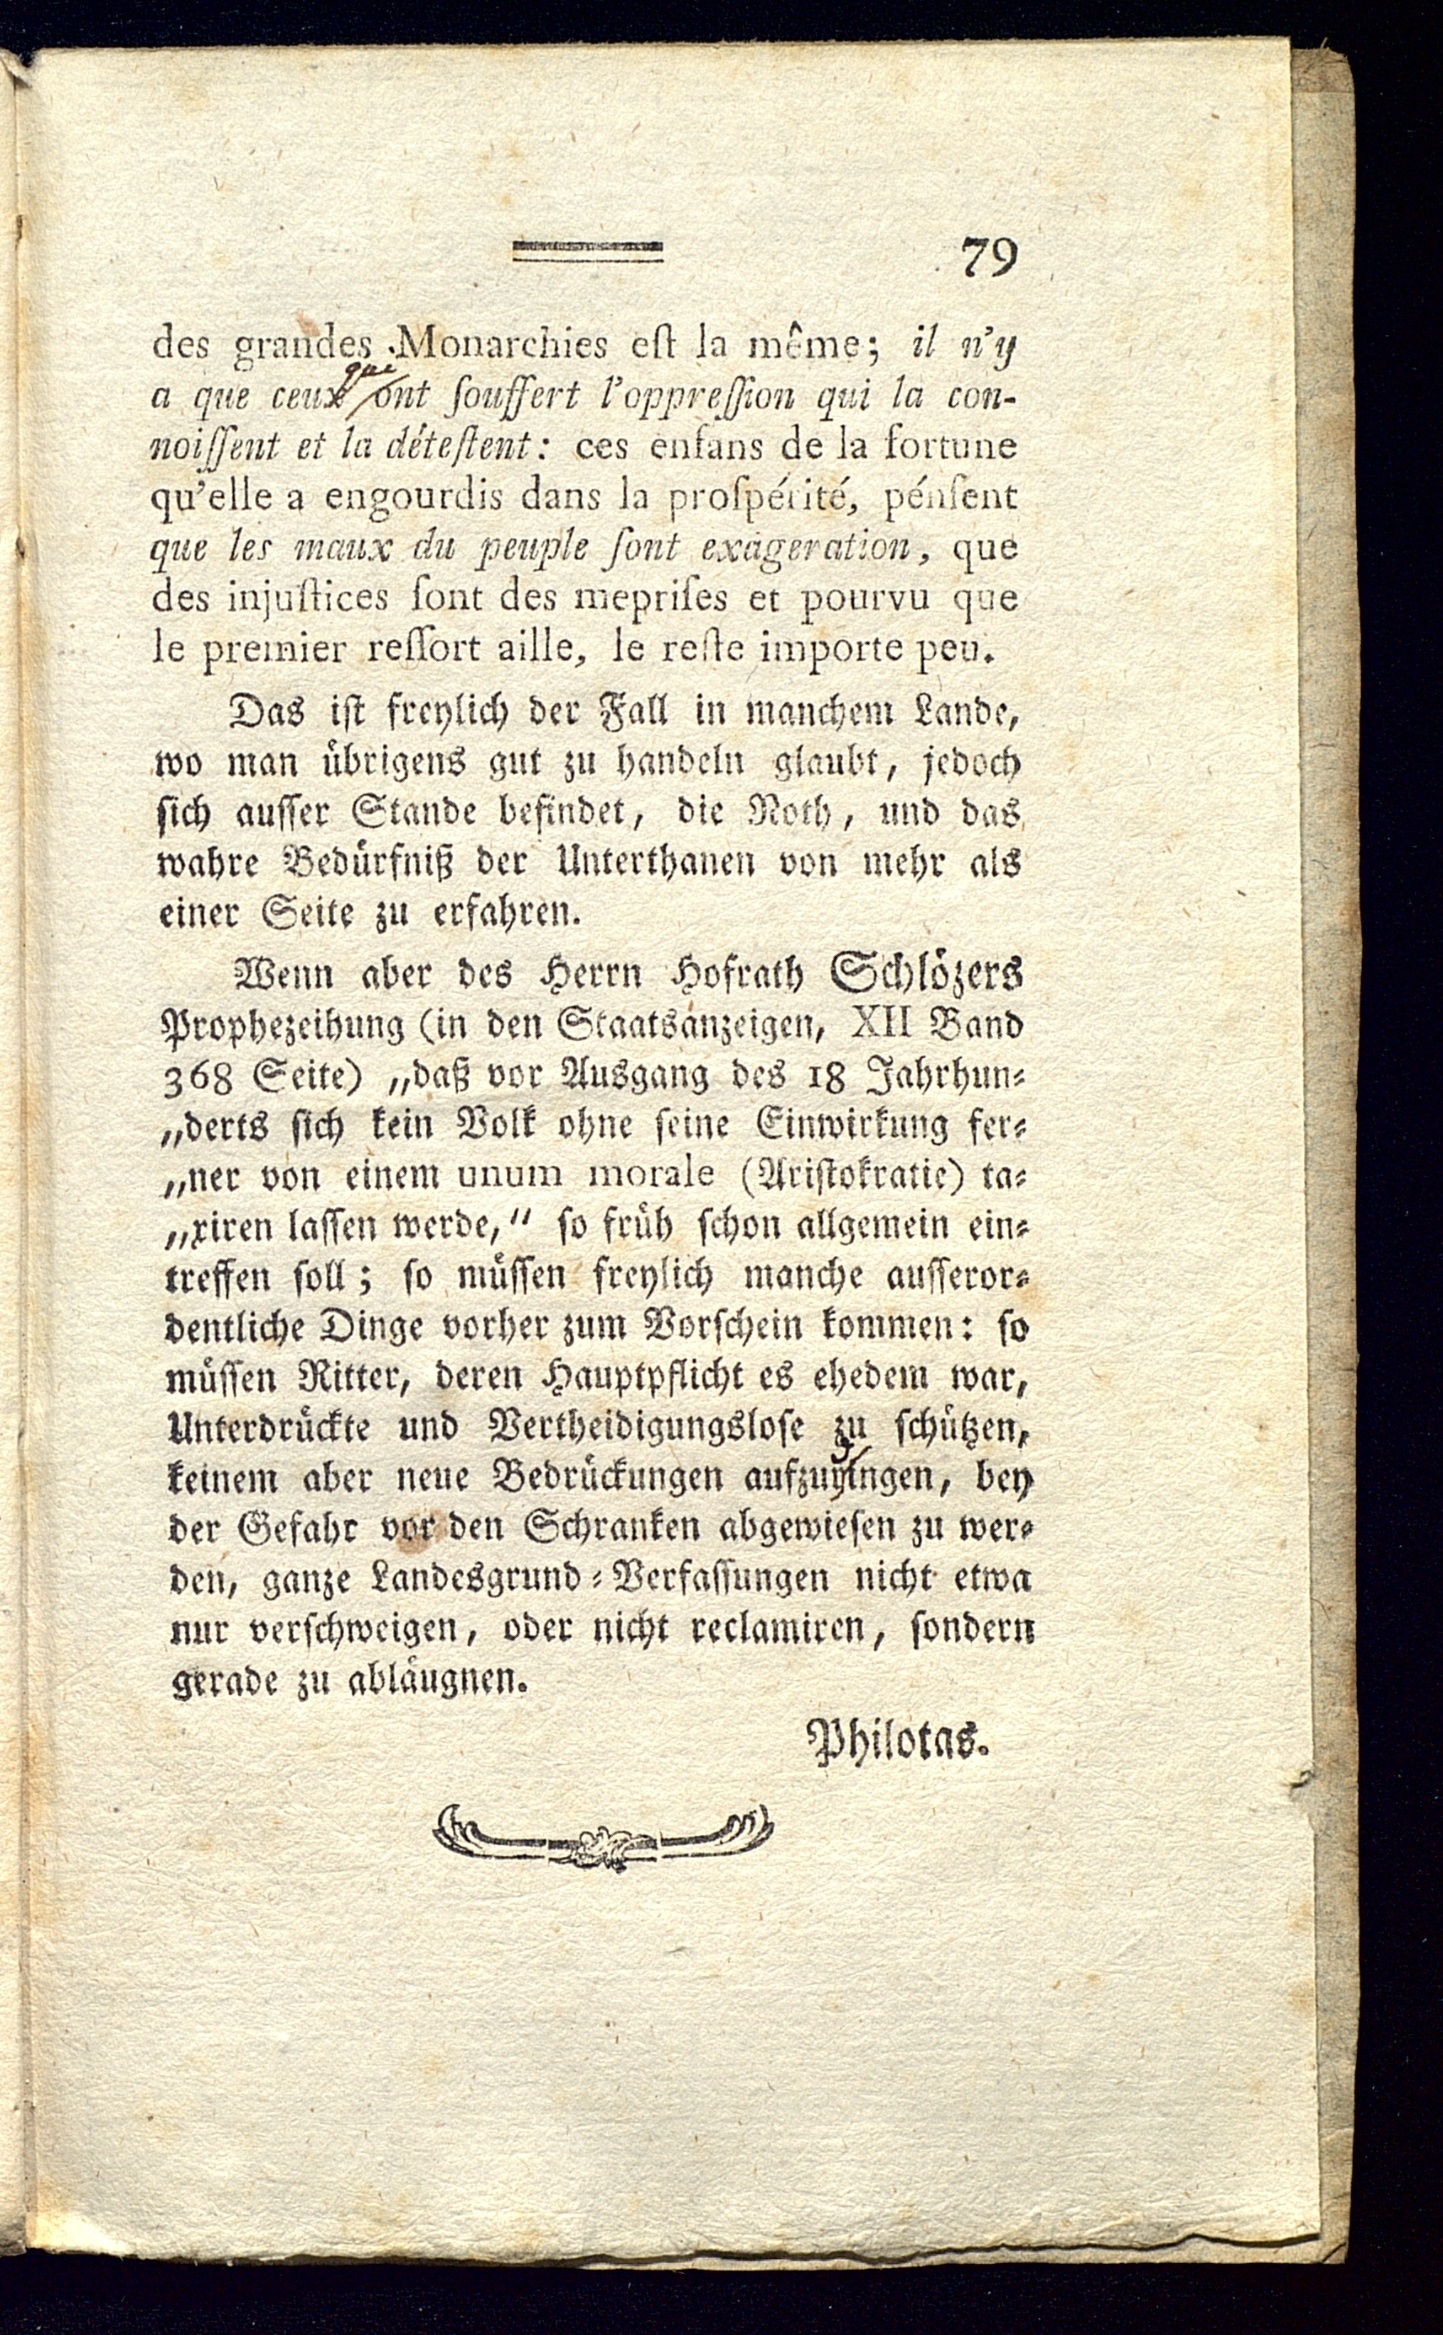 79
des grandes Monarchies eſt la même; il n'y
a que ceux que ont ſouffert l'oppreſſion qui la con-
noiſſent et la déteſtent: ces enfans de la fortune
qu'elle a engourdis dans la proſpérité, pénſent
que les maux du peuple ſont exageration, que
des injuſtices ſont des mepriſes et pourvu que
le premier reſſort aille, le reſte importe peu.
Das iſt freylich der Fall in manchem Lande,
wo man übrigens gut zu handeln glaubt, jedoch
ſich auſſer Stande befindet, die Noth, und das
wahre Bedürfniß der Unterthanen von mehr als
einer Seite zu erfahren.
Wenn aber des Herrn Hofrath Schlözers
Prophezeihung (in den Staatsanzeigen, XII Band
368 Seite) „daß vor Ausgang des 18 Jahrhun⸗
„derts ſich kein Volk ohne ſeine Einwirkung fer⸗
„ner von einem unum morale (Ariſtokratie) ta⸗
„xiren laſſen werde,“ ſo früh ſchon allgemein ein⸗
treffen ſoll; ſo müſſen freylich manche auſſeror⸗
dentliche Dinge vorher zum Vorſchein kommen: ſo
müſſen Ritter, deren Hauptpflicht es ehedem war,
Unterdrückte und Vertheidigungsloſe zu ſchützen,
keinem aber neue Bedrückungen aufzuyingen, bey
der Gefahr vor den Schranken abgewieſen zu wer⸗
den, ganze Landesgrund⸗Verfaſſungen nicht etwa
nur verſchweigen, oder nicht reclamiren, ſondern
gerade zu abläugnen.
Philotas.